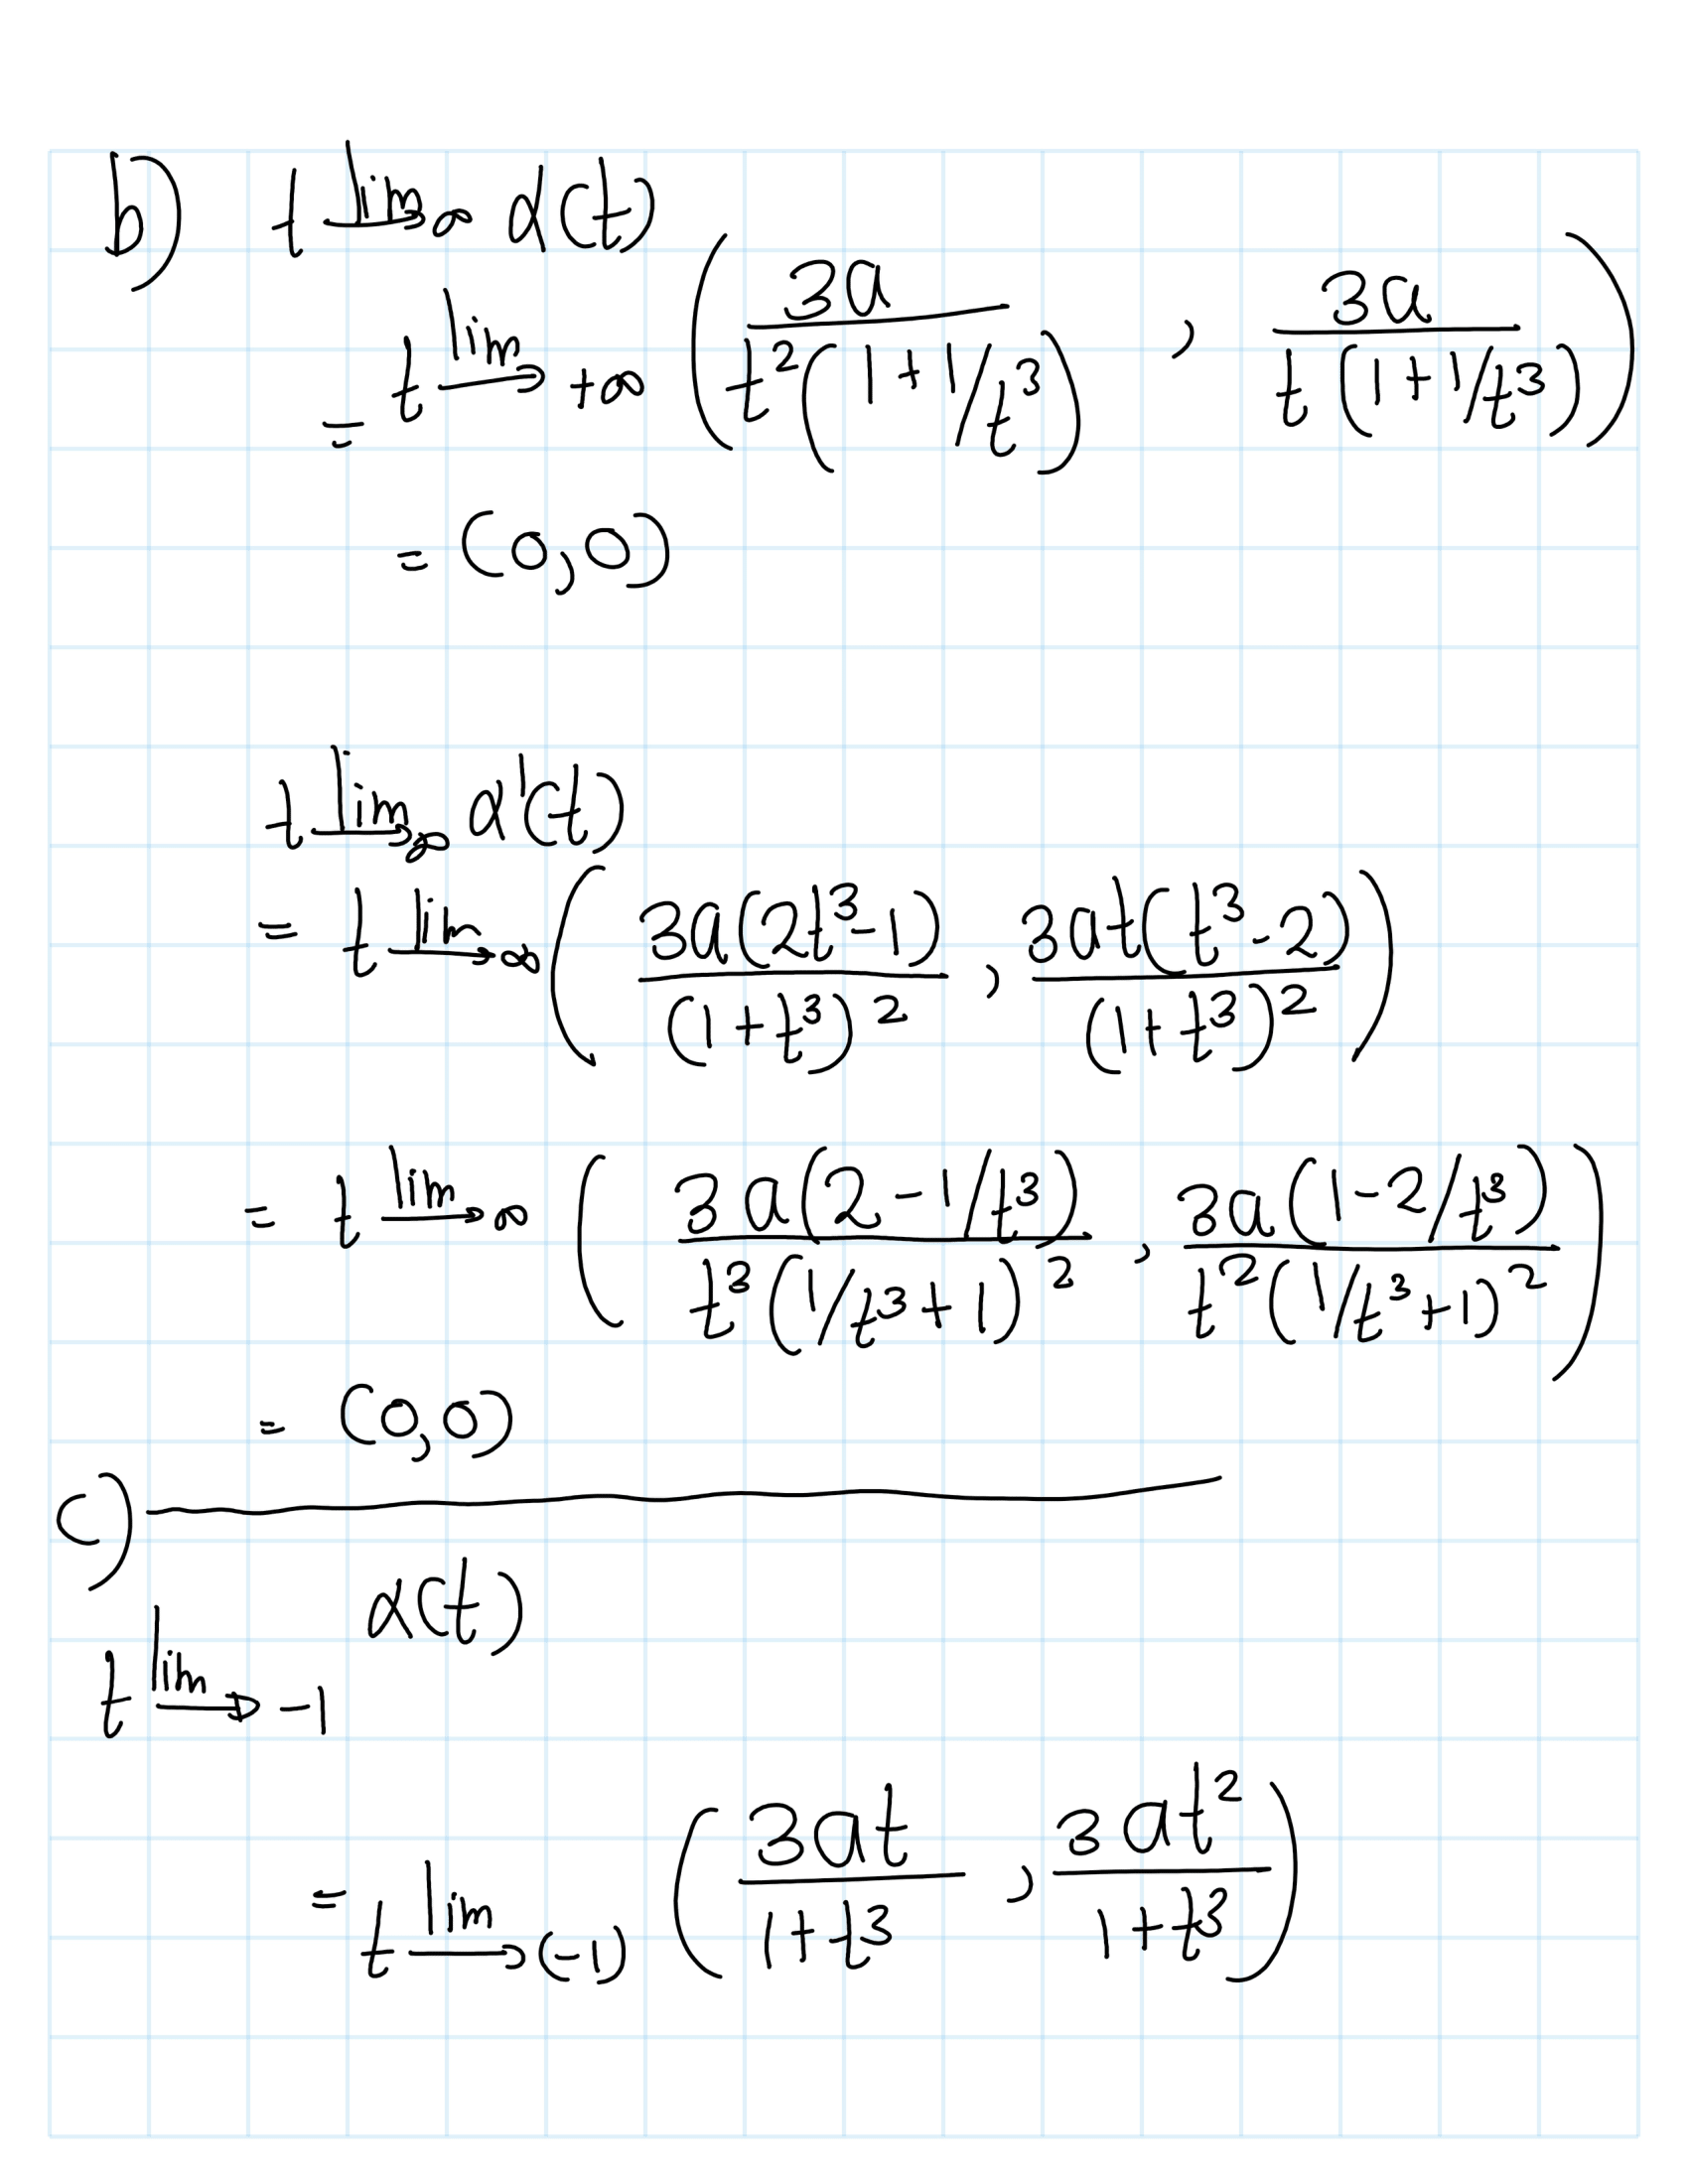 b) lim t→∞ α(t)
= lim t→+∞ ( 3a / t²(1+1/t³) , 3a / t(1+1/t³) )
= (0,0)
lim t→∞ α'(t)
= lim t→∞ ( 3a(2t³-1) / (1+t³)² , 3at(t³-2) / (1+t³)² )
= lim t→∞ ( 3a(2-1/t³) / t³(1/t³+1)² , 3a(1-2/t³) / t²(1/t³+1)² )
= (0,0)
c)
lim t→-1 α(t)
= lim t→(-1) ( 3at / 1+t³ , 3at² / 1+t³ )